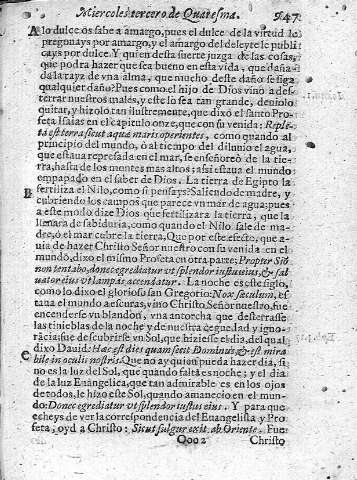 Miercoles tercero de Quaresma. 947
lo dulce os sabe a amargo, pues el dulce de la virtud lo
pregonays por amargo, y el amargo del deleyte le publi
cays por dulce. Y quien desta suerte juzga de las cosas,
que podra hazer que sea bueno en esta vida, que daña-
da la rayz de vna alma, que mucho deste daño se siga
qualquier daño? Pues como el hijo de Dios vino a des-
terrar nuestros males, y este lo sea tan grande, deuiolo
quitar, y hizolo tan ilustremente, que dixo el santo Pro-
feta Isaias en el capitulo onze, que con su venida: Reple-
ta est terra sicut aqua maris operientes, como quando al
principio del mundo, ò al tiempo del diluuio el agua,
que estaua represada en el mar, se enseñoreò de la tie-
rra, hasta de los montes mas altos; assi estaua el mundo
empapado en el saber de Dios. La tierra de Egipto la
B
fertiliza el Nilo, como si pensays? Saliendo de madre, y
cubriendo los campos que parece vn mar de agua; pues
a este modo dize Dios que fertilizara la tierra, que la
llenara de sabiduria, como quando el Nilo sale de ma-
dre, ò el mar cubre la tierra, Que por este efecto, que a-
uia de hazer Christo Señor nuestro con su venida en el
mundo, dixo el mismo Profeta en otra parte; Propter Siõ
non tentabo, donec egrediatur vt splendor iustus eius, & sal
uator eius vt lampas accendatur. La noche es este siglo,
como lo dixo el glorioso san Gregorio: Nox sæculum, es
taua el mundo a escuras, vino Christo Señor nuestro, fue
encenderse vn blandon, vna antorcha que desterrasse
las tinieblas de la noche y de nuestra ceguedad y igno-
rãcia; fue descubrirse vn Sol, que hiziesse el dia, del qual
dixo Dauid: Hæc est dies quam fecit Dominus & est mira
C
bile in oculis nostris. Que no ay quien pueda hazer dia, si
no es la luz del Sol, que quando falta es noche; y el dia
de la luz Euãgelica, que tan admirable es en los ojos
de todos, le hizo este Sol, quando amanecio en el mun-
do: Donec egrediatur vt splendor iustus eius. Y para que
echeys de ver la correspondencia del Euangelista y Pro
feta, oyd a Christo: Sicut fulgur exit ab Oriente. Fue
Ooo 2 Christo